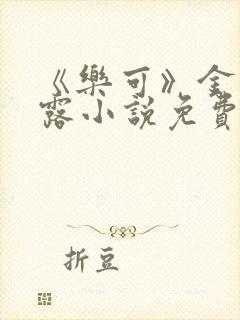 《樂可》金
露小說免費
折豆